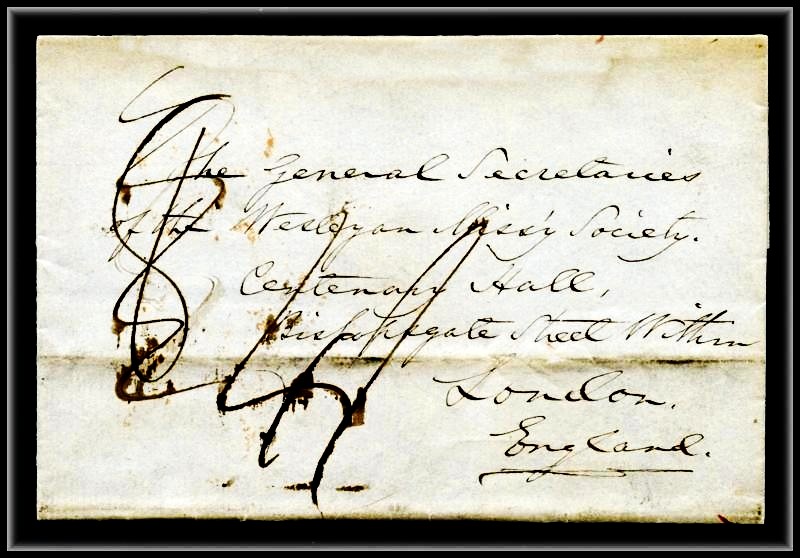 The General Secretaries
of the Wesleyan Miss'y Society.
Centenary Hall,
Bishopsgate Street Within
London.
England.